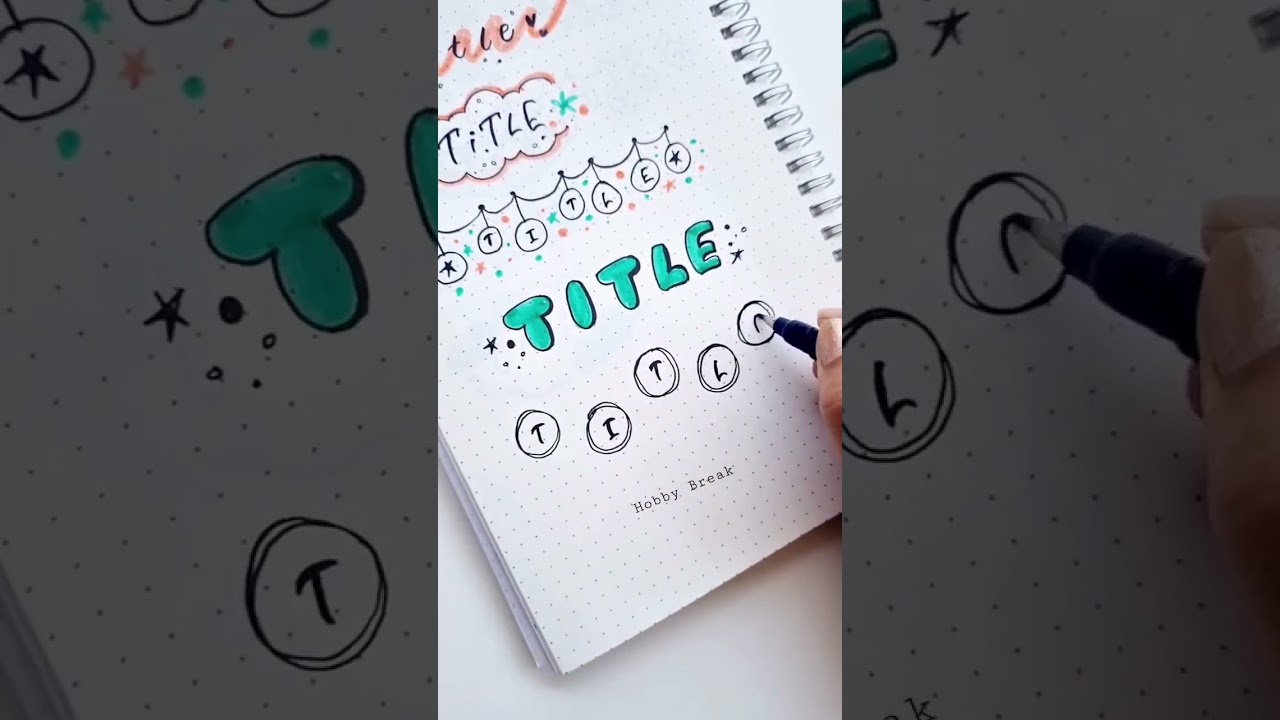 tle
TiTLE
TITLE
TITLE
TITL
Hobby Break